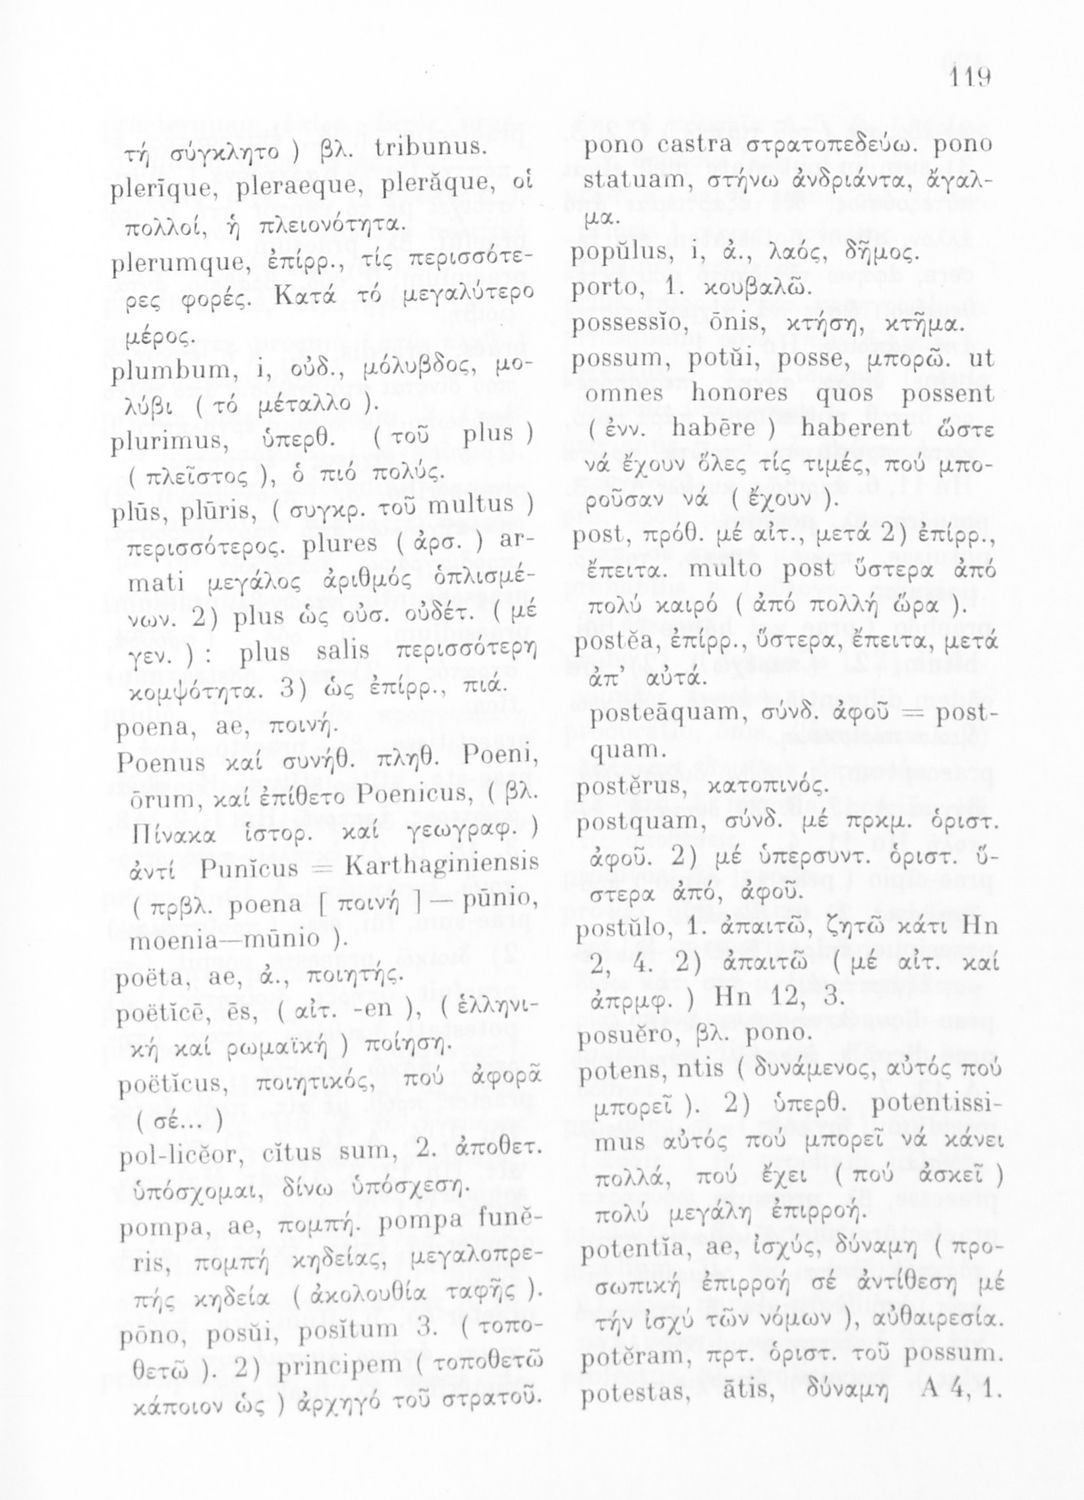 119
τή σύγκλητο ) βλ. tribunus.
plerīque, pleraeque, plerăque, οἱ
πολλοί, ἡ πλειονότητα.
plerumque, ἐπίρρ., τίς περισσότε-
ρες φορές. Κατά τό μεγαλύτερο
μέρος.
plumbum, i, οὐδ., μόλυβδος, μο-
λύβι ( τό μέταλλο ).
plurimus, ὑπερθ. ( τοῦ plus )
( πλεῖστος ), ὁ πιό πολύς.
plūs, plūris, ( συγκρ. τοῦ multus )
περισσότερος. plures ( ἀρσ. ) ar-
mati μεγάλος ἀριθμός ὁπλισμέ-
νων. 2) plus ὡς οὐσ. οὐδέτ. ( μέ
γεν. ) : plus salis περισσότερη
κομψότητα. 3) ὡς ἐπίρρ., πιά.
poena, ae, ποινή.
Poenus καί συνήθ. πληθ. Poeni,
ōrum, καί ἐπίθετο Poenicus, ( βλ.
Πίνακα ἱστορ. καί γεωγραφ. )
ἀντί Punĭcus = Karthaginiensis
( πρβλ. poena [ ποινή ] — pūnio,
moenia—mūnio ).
poëta, ae, ἀ., ποιητής.
poëtĭcē, ēs, ( αἰτ. -en ), ( ἑλληνι-
κή καί ρωμαϊκή ) ποίηση.
poëtĭcus, ποιητικός, πού ἀφορᾶ
( σέ... )
pol-licĕor, cĭtus sum, 2. ἀποθετ.
ὑπόσχομαι, δίνω ὑπόσχεση.
pompa, ae, πομπή. pompa funĕ-
ris, πομπή κηδείας, μεγαλοπρε-
πής κηδεία ( ἀκολουθία ταφῆς ).
pōno, posŭi, posĭtum 3. ( τοπο-
θετῶ ). 2) principem ( τοποθετῶ
κάποιον ὡς ) ἀρχηγό τοῦ στρατοῦ.
pono castra στρατοπεδεύω. pono
statuam, στήνω ἀνδριάντα, ἄγαλ-
μα.
popŭlus, i, ἀ., λαός, δῆμος.
porto, 1. κουβαλῶ.
possessĭo, ōnis, κτήση, κτῆμα.
possum, potŭi, posse, μπορῶ. ut
omnes honores quos possent
( ἐνν. habēre ) haberent ὥστε
νά ἔχουν ὅλες τίς τιμές, πού μπο-
ροῦσαν νά ( ἔχουν ).
post, πρόθ. μέ αἰτ., μετά 2) ἐπίρρ.,
ἔπειτα. multo post ὕστερα ἀπό
πολύ καιρό ( ἀπό πολλή ὥρα ).
postĕa, ἐπίρρ., ὕστερα, ἔπειτα, μετά
ἀπ’ αὐτά.
posteāquam, σύνδ. ἀφοῦ = post-
quam.
postĕrus, κατοπινός.
postquam, σύνδ. μέ πρκμ. ὁριστ.
ἀφοῦ. 2) μέ ὑπερσυντ. ὁριστ. ὕ-
στερα ἀπό, ἀφοῦ.
postŭlo, 1. ἀπαιτῶ, ζητῶ κάτι Hn
2, 4. 2) ἀπαιτῶ ( μέ αἰτ. καί
ἀπρμφ. ) Hn 12, 3.
posuĕro, βλ. pono.
potens, ntis ( δυνάμενος, αὐτός πού
μπορεῖ ). 2) ὑπερθ. potentissi-
mus αὐτός πού μπορεῖ νά κάνει
πολλά, πού ἔχει ( πού ἀσκεῖ )
πολύ μεγάλη ἐπιρροή.
potentĭa, ae, ἰσχύς, δύναμη ( προ-
σωπική ἐπιρροή σέ ἀντίθεση μέ
τήν ἰσχύ τῶν νόμων ), αὐθαιρεσία.
potĕram, πρτ. ὁριστ. τοῦ possum.
potestas, ātis, δύναμη A 4, 1.